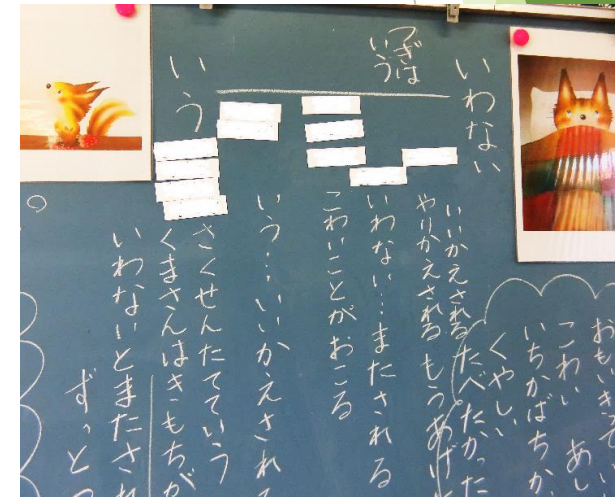 おもいきって い
こわい あし
いちかばちか
くやしい
たべたかった
いわない
いいかえされる
やりかえされる もうあげ
いわない…またされる
こわいことがおこる
つぎは
いう
いう…いいかえされて
いう
さくせんたてていう
くまさんはきもちが
いわないとまたされ
ずっと